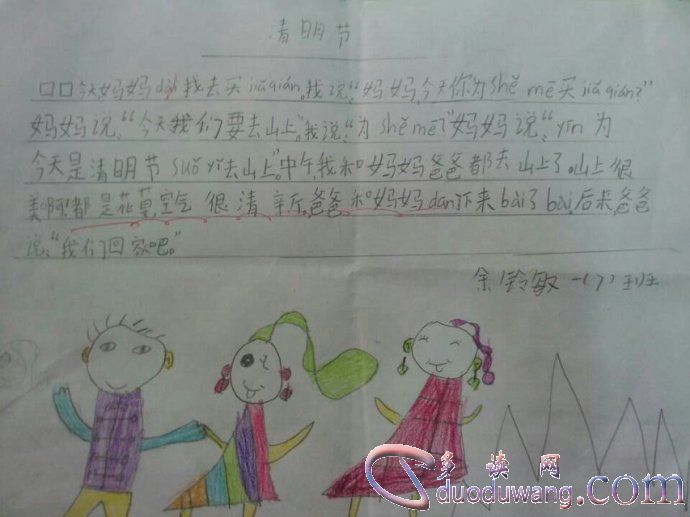 清明节
口口今天妈妈dài我去买jiǎ qián。我说:“妈妈,今天你为shě mē买jiǎ qián?”
妈妈说:“今天我们要去山上。”我说:“为shě mē?”妈妈说:“yīn为
今天是清明节suǒ yǐ去山上。”中午我和妈妈爸爸都去山上了。山上很
美啊!都是花草,空气很清新。爸爸和妈妈dān下来bài了bài,后来,爸爸
说:“我们回家吧。”
余铃敏 一(7)班
多读网
duoduwang.com